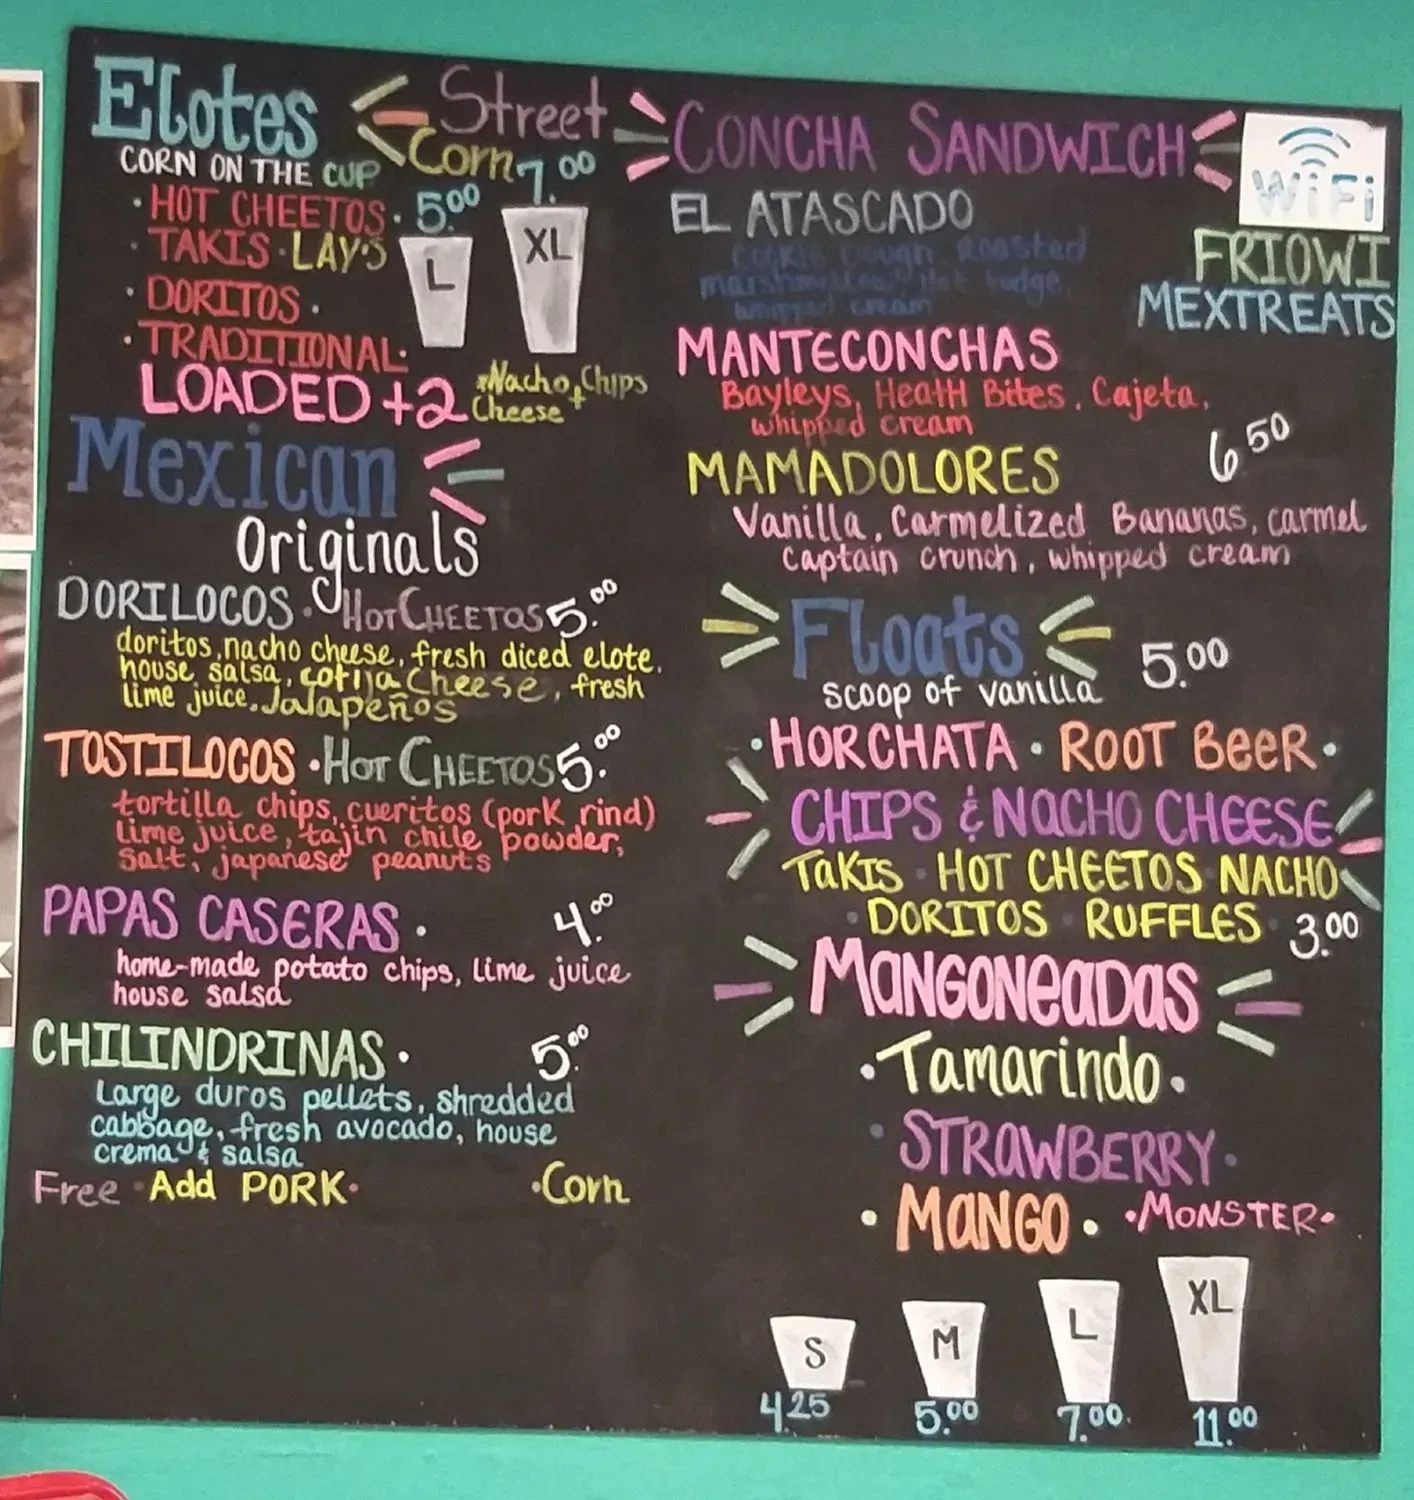 Elotes
Street
Corn
CORN ON THE CUP
7.00
• HOT CHEETOS • 5.00
• TAKIS • LAY'S
L
XL
• DORITOS •
• TRADITIONAL •
LOADED +2
*Nacho Chips
+
Cheese
Mexican
Originals
DORILOCOS • HOT CHEETOS 5.00
doritos, nacho cheese, fresh diced elote,
house salsa, cotija cheese, fresh
lime juice, Jalapeños
TOSTILOCOS • HOT CHEETOS 5.00
tortilla chips, cueritos (pork rind)
lime juice, tajin chile powder,
salt, japanese peanuts
PAPAS CASERAS • 4.00
home-made potato chips, lime juice
house salsa
CHILINDRINAS • 5.00
Large duros pellets, shredded
cabbage, fresh avocado, house
crema & salsa
Free • Add PORK • • Corn
CONCHA SANDWICH
EL ATASCADO
Cookie Dough, Roasted
marshmallow, Hot Fudge,
whipped cream
MANTECONCHAS
Bayleys, Heath Bites, Cajeta,
whipped cream
6.50
MAMADOLORES
Vanilla, Carmelized Bananas, carmel
captain crunch, whipped cream
Floats
5.00
scoop of vanilla
• HORCHATA • ROOT BEER •
CHIPS & NACHO CHEESE
TAKIS • HOT CHEETOS NACHO
• DORITOS • RUFFLES 3.00
MANGONEADAS
• Tamarindo •
• STRAWBERRY •
• MANGO • • MONSTER •
S
M
L
XL
4.25
5.00
7.00
11.00
WiFi
FRIOWI
MEXTREATS